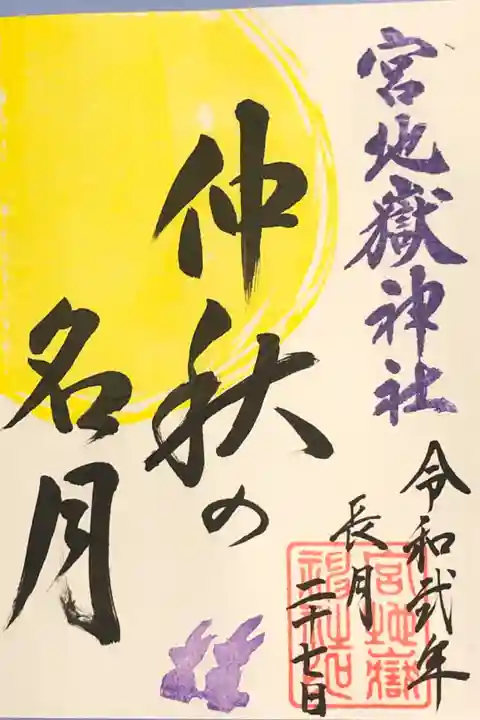 宮地嶽神社
令和弐年
長月
二十七日
仲秋の
名月